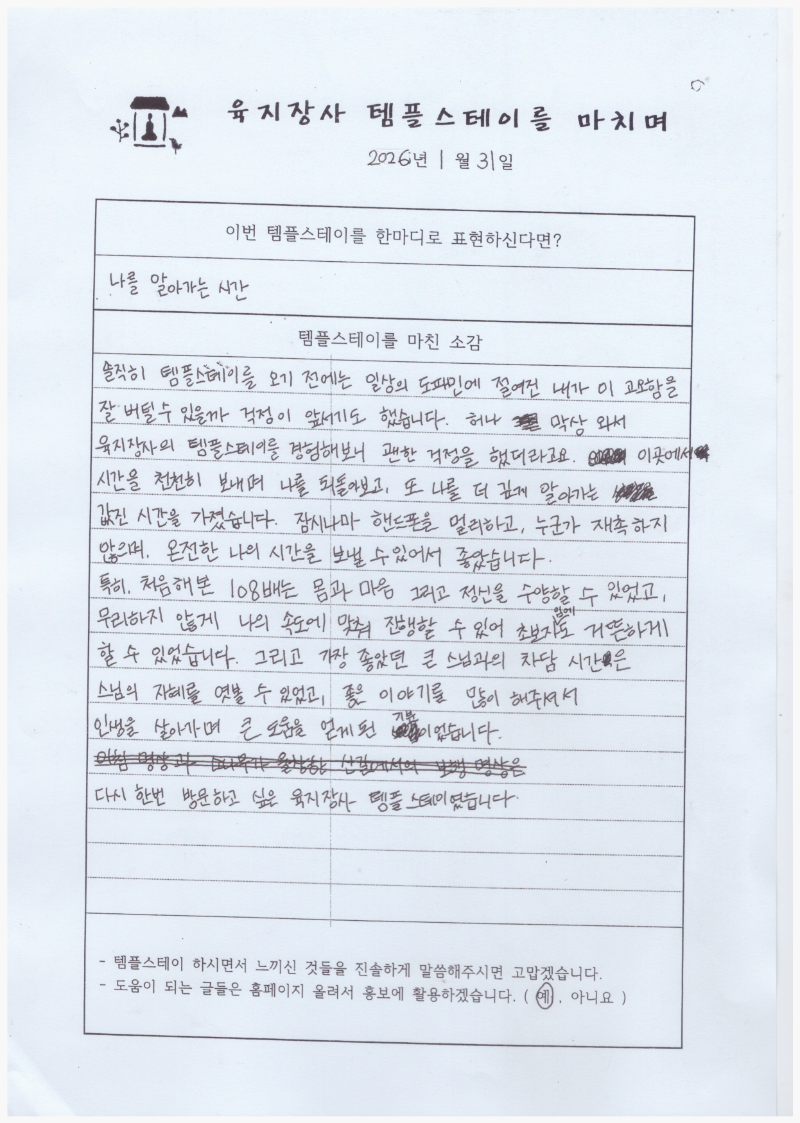 육지장사 템플스테이를 마치며
2026년 1월 31일
이번 템플스테이를 한마디로 표현하신다면?
나를 알아가는 시간
템플스테이를 마친 소감
솔직히 템플스테이를 오기 전에는 일상의 도파민에 절여진 내가 이 고요함을
잘 버틸 수 있을까 걱정이 앞서기도 했습니다. 허나 막상 와서
육지장사의 템플스테이를 경험해보니 괜한 걱정을 했더라고요. 이곳에서
시간을 천천히 보내며 나를 되돌아보고, 또 나를 더 깊게 알아가는
값진 시간을 가졌습니다. 잠시나마 핸드폰을 멀리하고, 누군가 재촉하지
않으며, 온전한 나의 시간을 보낼 수 있어서 좋았습니다.
특히, 처음해본 108배는 몸과 마음 그리고 정신을 수양할 수 있었고,
무리하지 않게 나의 속도에 맞춰 진행할 수 있어 초보자임에도 거뜬하게
할 수 있었습니다. 그리고 가장 좋았던 큰 스님과의 차담 시간은
스님의 지혜를 엿볼 수 있었고, 좋은 이야기를 많이 해주셔서
인생을 살아가며 큰 도움을 얻게 된 기분이었습니다.
아침 명상과 산길에서의 보행 명상은
다시 한번 방문하고 싶은 육지장사 템플스테이였습니다.
- 템플스테이 하시면서 느끼신 것들을 진솔하게 말씀해주시면 고맙겠습니다.
- 도움이 되는 글들은 홈페이지 올려서 홍보에 활용하겠습니다. ( 예 , 아니요 )